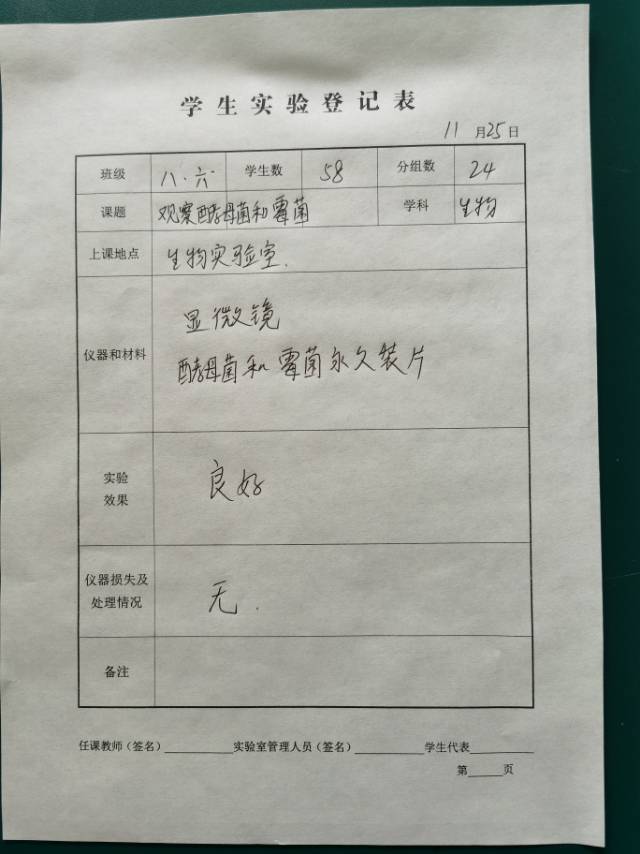 学生实验登记表
11月25日
班级 八.六 学生数 58 分组数 24
课题 观察酵母菌和霉菌 学科 生物
上课地点 生物实验室.
仪器和材料 显微镜
酵母菌和霉菌永久装片
实验
效果 良好
仪器损失及
处理情况 无.
备注
任课教师(签名)________实验室管理人员(签名)________学生代表________
第____页